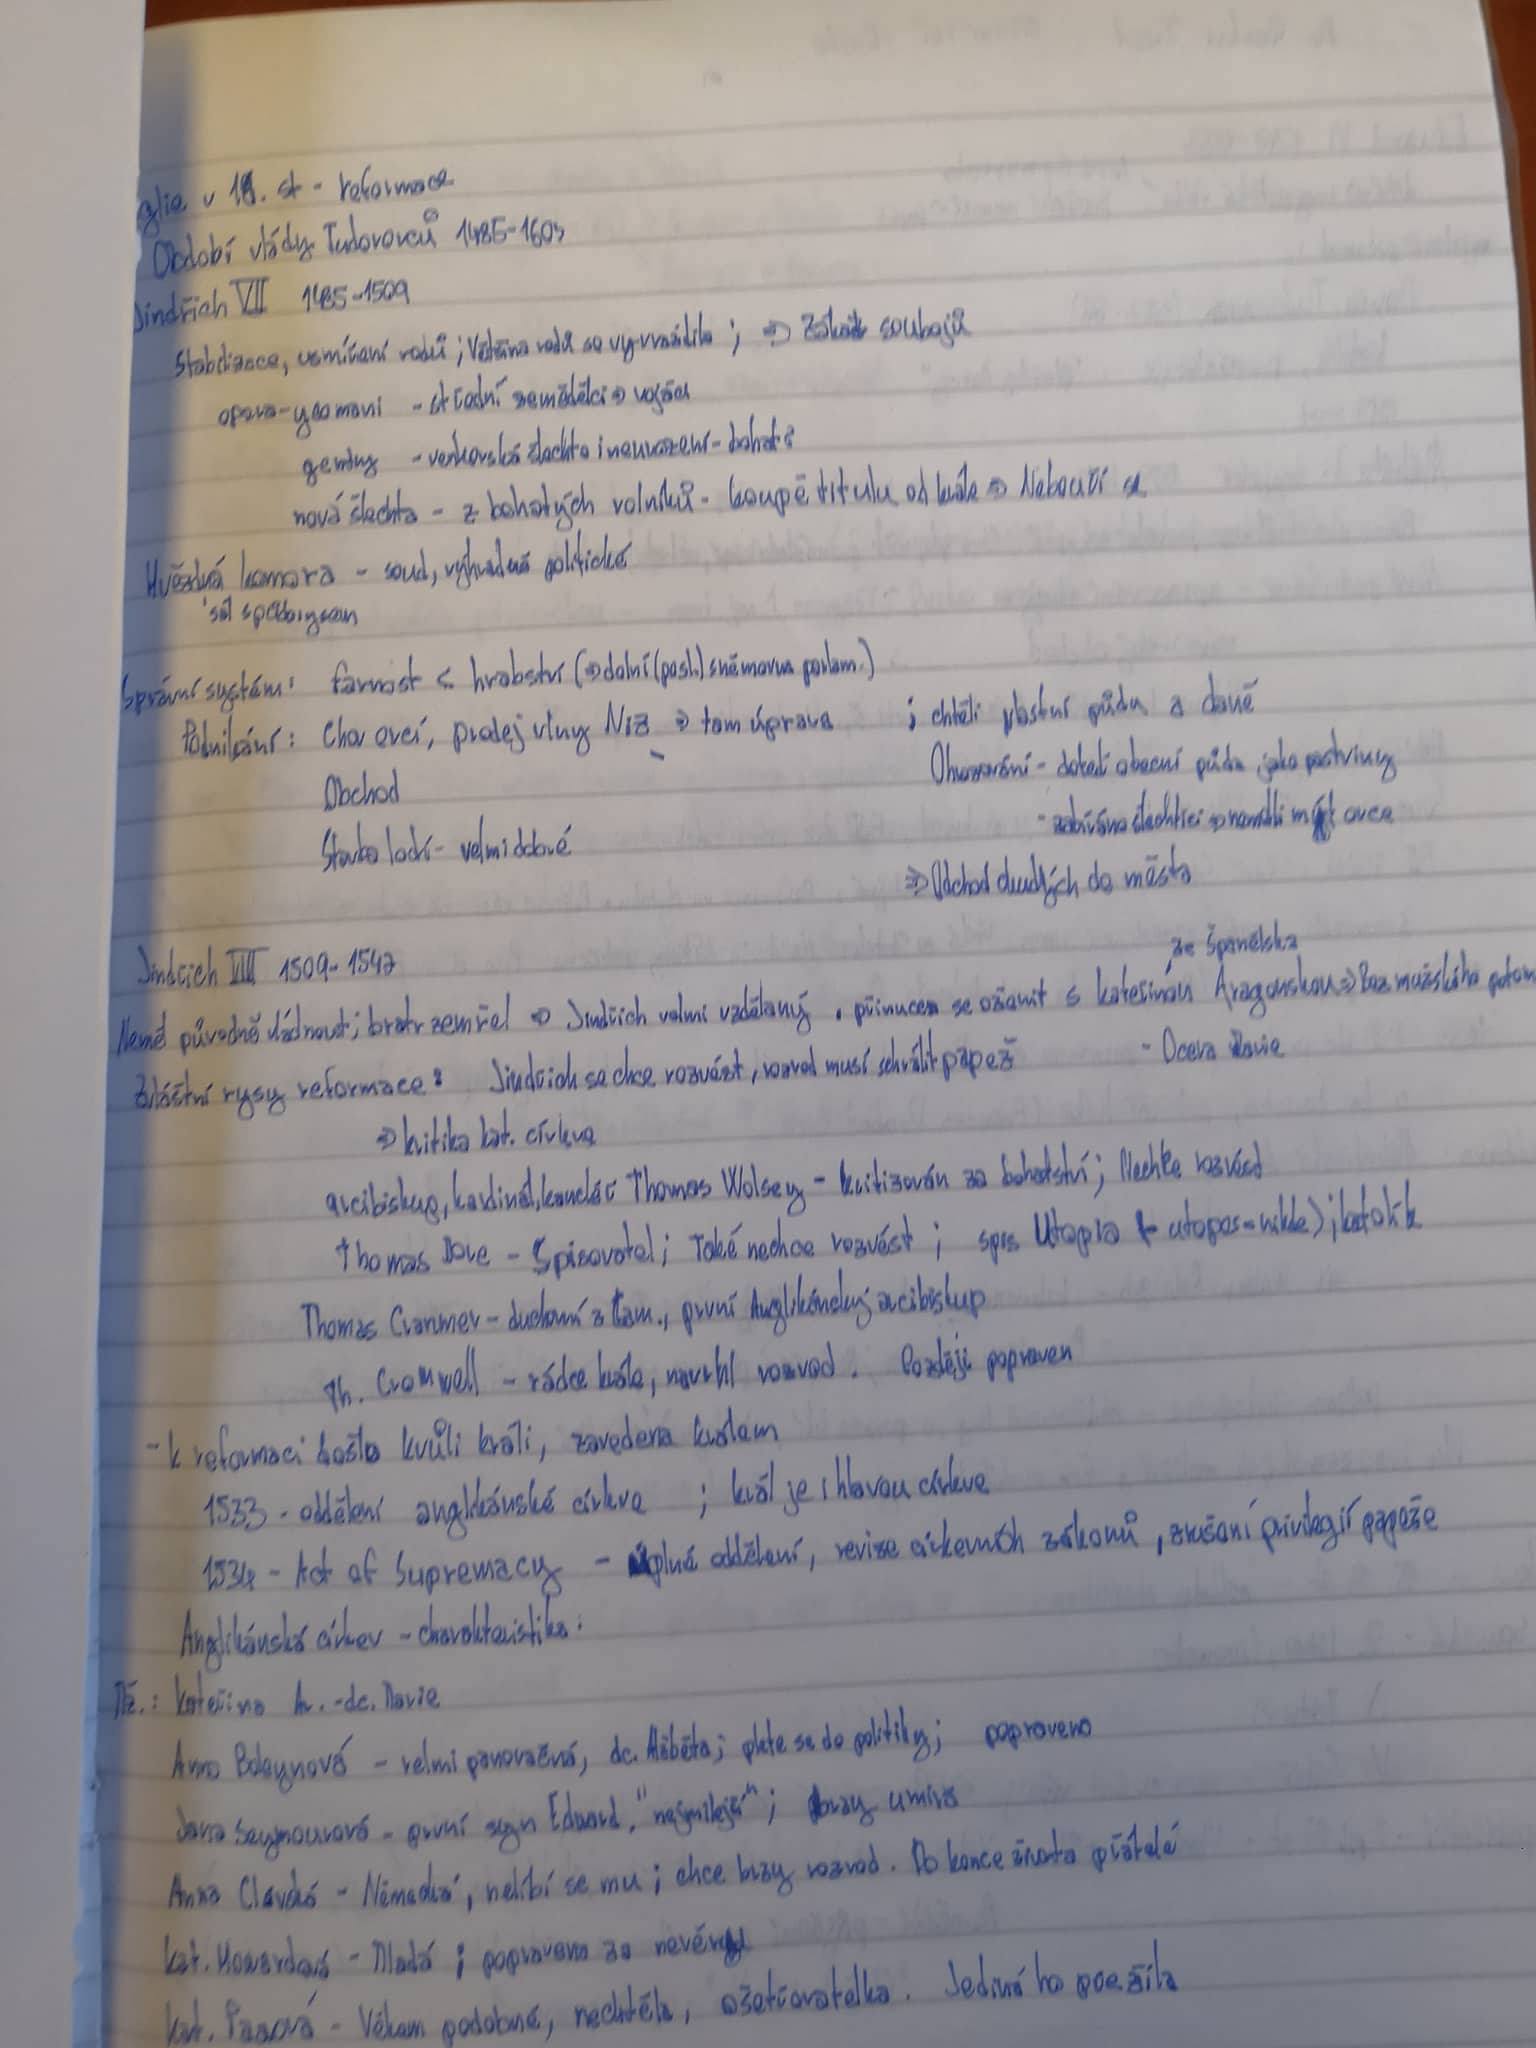 glie v 16. st - reformace
Období vlády Tudorovců 1485-1603
Jindřich VII 1485-1509
Stabilizace, usmíření rodů; Většina rodů se vyvraždila; ⇒ Zákaz soubojů
opora - yeomani - střední zemědělci ⇒ vojáci
gentry - venkovská šlechta i neurození - bohatí
nová šlechta - z bohatých rolníků - koupě titulu od krále ⇒ Nebouří se
Hvězdná komora - soud, výhradně politické
sál s
Správní systém: farnost < hrabství (⇒ dolní (posl.) sněmovna parlam.)
Podnikání: Chov ovcí, prodej vlny Niz ⇒ tam úprava ; chtěli vlastní půdu a daně
Ohrazování - dotek obecní půda jako pastviny
Obchod
- zabírána šlechtici ⇒ neměli mít ovce
Stavba lodí - velmi dobré
⇒ Odchod chudých do města
Jindřich VIII 1509-1547
ze Španělska
Neměl původně vládnout; bratr zemřel ⇒ Jindřich velmi vzdělaný, přinucen se oženit s Kateřinou Aragonskou ⇒ Bez mužského potom
- Dcera Marie
Zvláštní rysy reformace: Jindřich se chce rozvést, rozvod musí schválit papež
⇒ kritika kat. církve
arcibiskup, kardinál, kancléř Thomas Wolsey - kritizován za bohatství; Nechce rozvod
Thomas More - Spisovatel; Také nechce rozvést; spis Utopia (utopos = nikde); katolík
Thomas Cranmer - duchovní z Cam., první Anglikánský arcibiskup
Th. Cromwell - rádce krále, navrhl rozvod. Později popraven
- K reformaci došlo kvůli králi, zavedena králem
1533 - oddělení anglikánské církve ; král je i hlavou církve
1534 - Act of Supremacy - úplné oddělení, revize církevních zákonů, zrušení privilegií papeže
Anglikánská církev - charakteristika:
Mž.: Kateřina Ar. - dc. Marie
Anna Boleynová - velmi panovačná, dc. Alžběta; plete se do politiky; popravena
Jana Seymourová - první syn Eduard, "nejmilejší"; brzy umírá
Anna Clevská - Německá, nelíbí se mu; chce brzy rozvod. Do konce života přátelé
Kat. Howardová - Mladá; popravena za nevěru
Kat. Parrová - Věkem podobné, nechtěla, ošetřovatelka. Jediná ho přežila